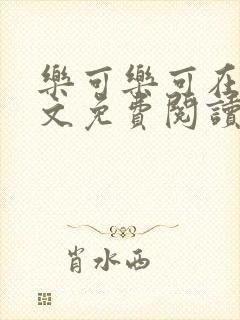 樂可樂可在
文免費閱讀
肖水西